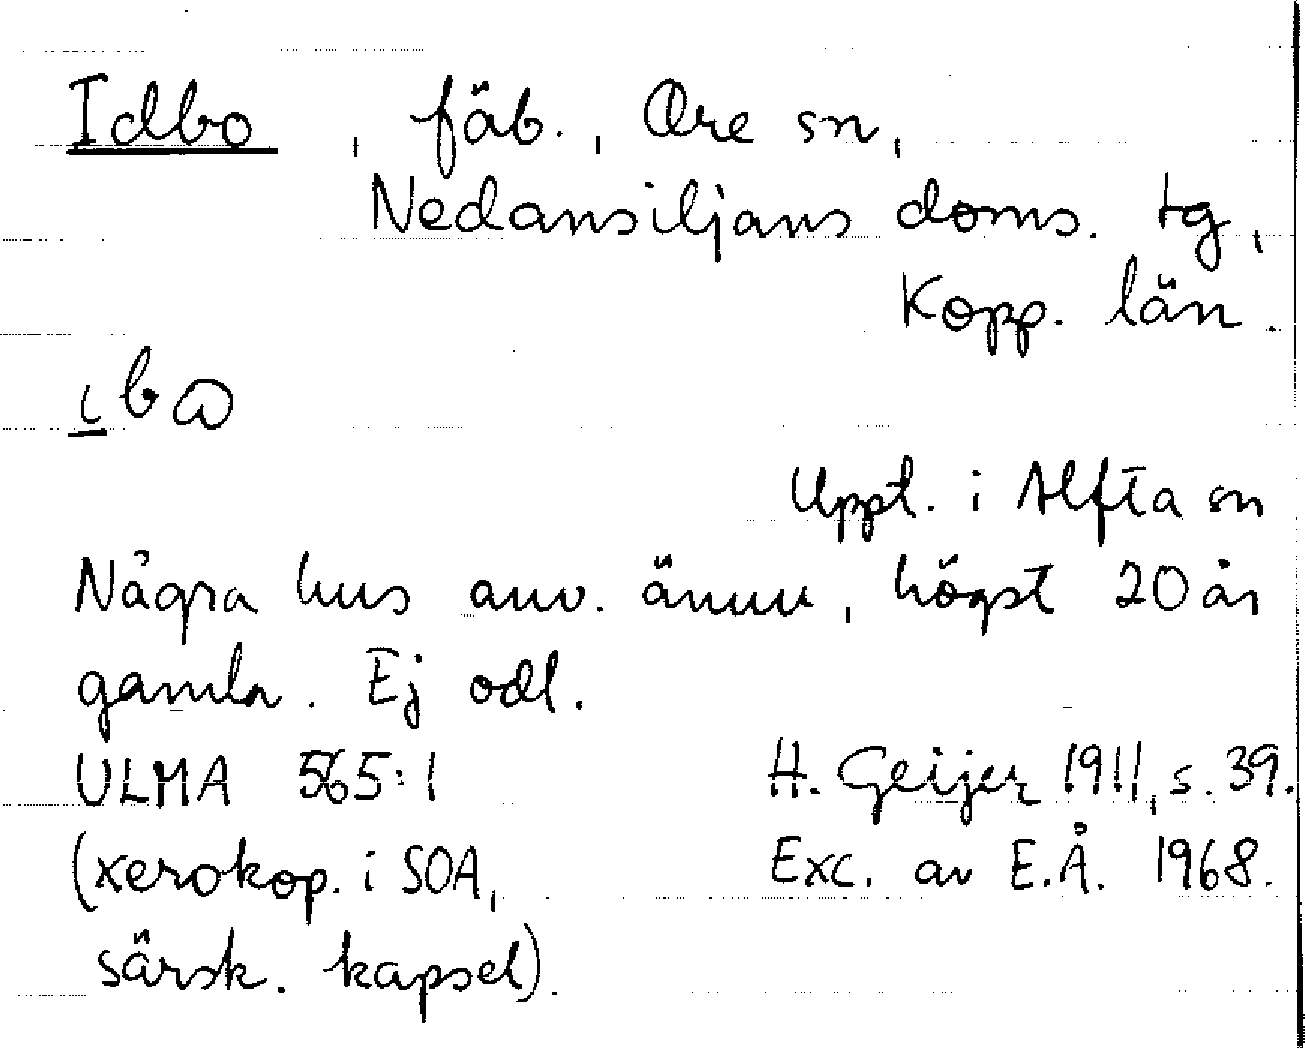 Idbo, fäb., Ore sn,
Nedansiljans doms. tg,
Kopp. län.
ibɷ
Uppt. i Alfta sn
Några hus anv. ännu, högst 20 år
gamla. Ej odl.
ULMA 565:1 H. Geijer 1911, s. 39.
(xerokop. i SOA, Exc. av E.Å. 1968.
särsk. kapsel).